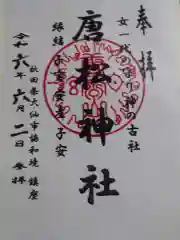 奉拝
女一代守り神の古社
唐松神社
縁結 子宝 安産 子安
秋田県大仙市協和境 鎮座
令和六年六月二日 参拝